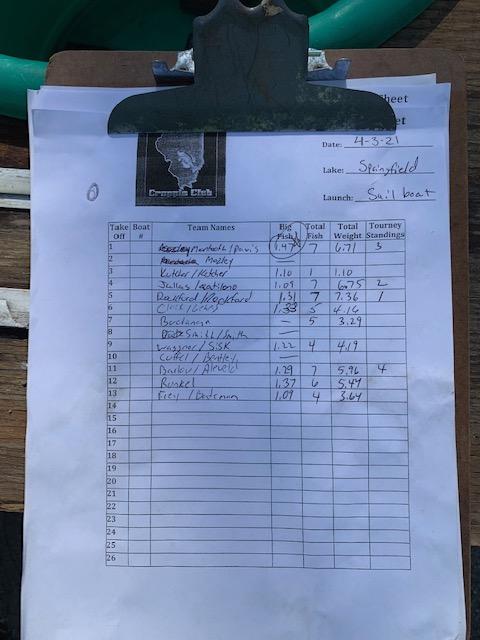 heet
et
Date: 4-3-21
Lake: Springfield
Launch: Sail boat
Crappie Club
Take Off Boat # Team Names Big Fish Total Fish Total Weight Tourney Standings
1 Monteath / Davis 1.47 7 6.71 3
2 Mozley —
3 Kutcher / Ketcher 1.10 1 1.10
4 1.09 7 6.75 2
5 Rockford / Rockford 1.31 7 7.36 1
6 Clark / Lewis 1.33 5 4.16
7 Buchanan — 5 3.29
8 Smith / Smith —
9 Waggner / Sisk 1.22 4 4.19
10 / Bentley —
11 Barlow / 1.29 7 5.96 4
12 Runkel 1.37 6 5.47
13 Frey / Bateman 1.09 4 3.64
14
15
16
17
18
19
20
21
22
23
24
25
26